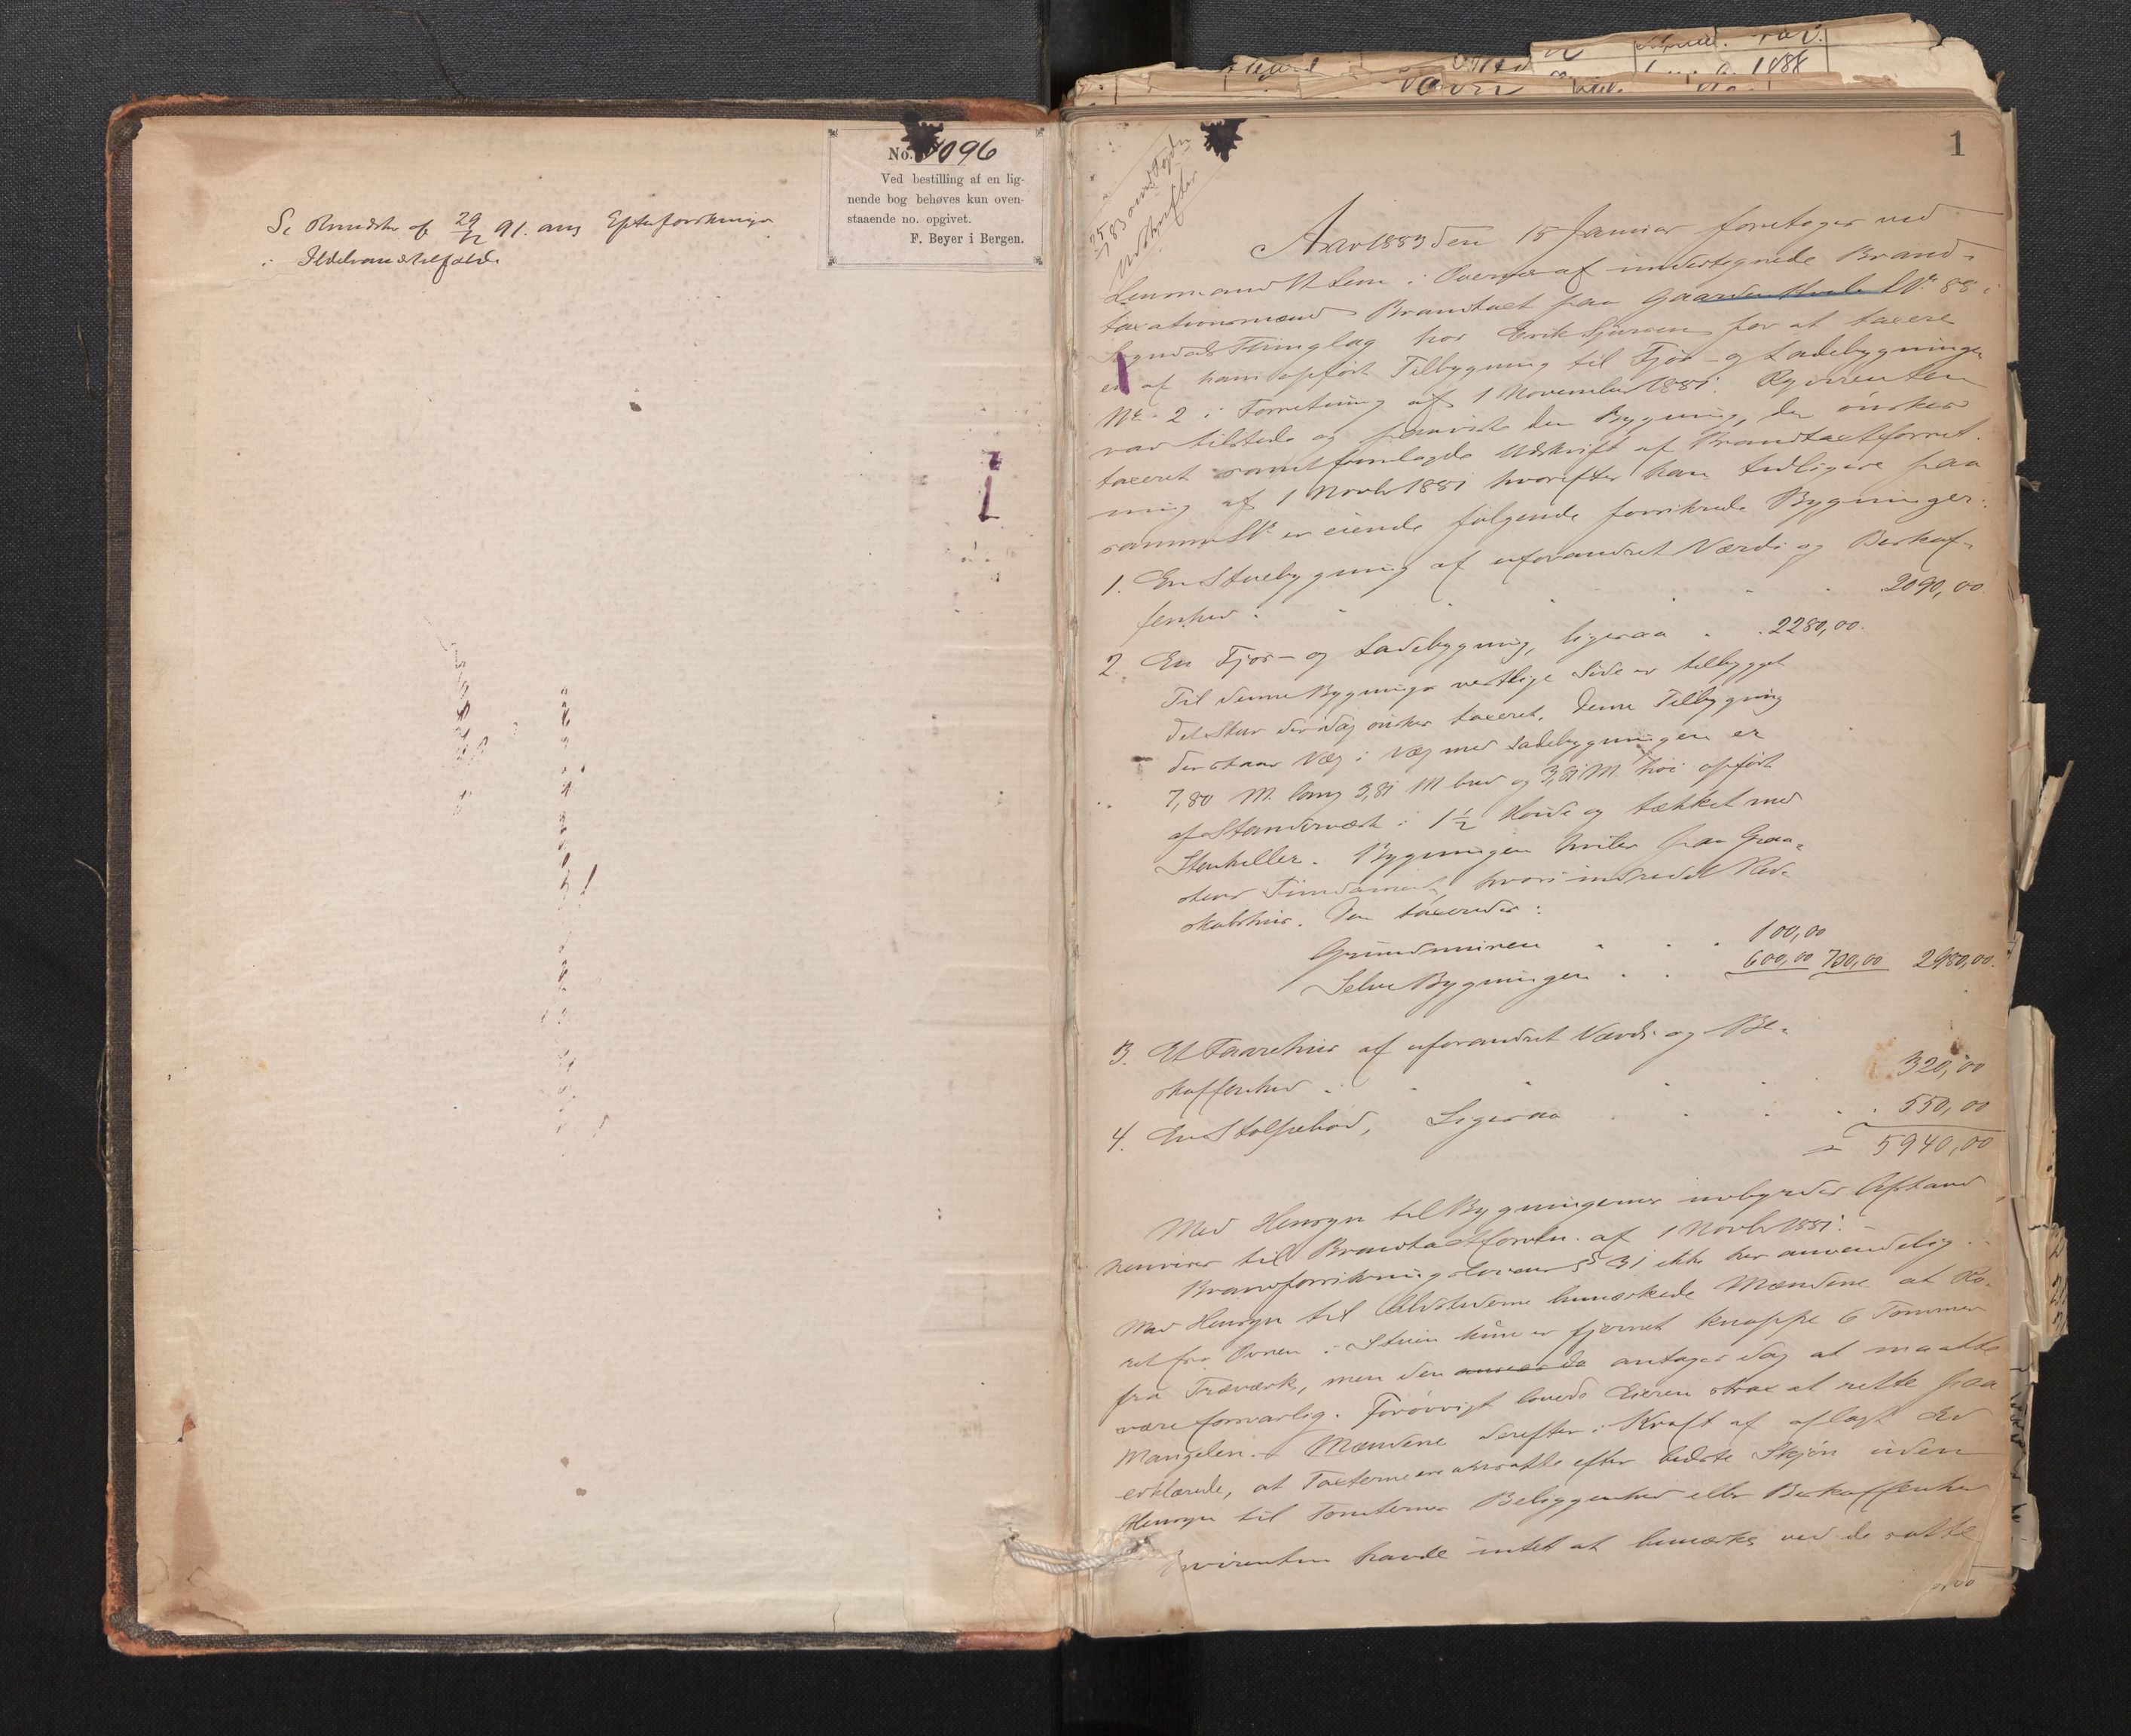 No. 4096
Ved bestilling af en lig-
nende bog behøves kun oven-
staaende no. opgivet.
F. Beyer i Bergen.
Se Rundskr af 29/12 91. ang Efterforskninger
i Ildebrandstilfælde
1
Aar 1883 den 15 Januar foretoges ved
Lensmand Lem i Overvær af undertegnede Brand-
taxationsmænd Brandtaxt paa Gaarden LNr 88 i
Sogndals Thinglag hos Erik Sjursen for at taxere
en af ham opført Tilbygning til Fjøs- og Ladebygningen
No. 2 i Forretning af 1 November 1881. Rqvirenten
var tilstede og paaviste den Bygning, der ønskes
taxeret samt fremlagde Udskrift af Brandtaxtforret-
ning af 1 Novbr 1881 hvorefter han tidligere paa
samme LNr er eiende følgende forsikrede Bygninger:
1. En Stuebygning af uforandret Værdi og Beskaf-
fenhed . . . . . 2090,00.
2. En Fjøs- og Ladebygning, ligesaa . . 2280,00.
Til denne Bygnings vestlige Side er tilbygget
det Skur der idag ønskes taxeret. Denne Tilbygning
der staar Væg i Væg med Ladebygningen er
7,80 M. lang 3,81 M bred og 3,81 M. høi opført
af Standerværk i 1½ Høide og tækket med
Stenheller. Bygningen hviler paa Graa-
stens Fundament, hvori indredet Red-
skabshus. Den taxeredes:
Grundmuren . . . 100,00
Selve Bygningen . . 600,00 700,00 2980,00.
3. Et Faarehus af uforandret Værdi og Be-
skaffenhed . . . . . 320,00
4. En Stolpebod, Ligesaa . . . . . 550,00
5940,00
Med Hensyn til Bygningernes indbyrdes Afstand
henvises til Brandtaxtforretn. af 1 Novbr 1881.
Brandforsikringslovens § 31 ikke her anvendelig.
Med Hensyn til Ildstederne bemærkede Mændene at Rø-
ret fra Ovnen i Stuen kun er fjernet knappe 6 Tommer
fra Træværk, men den antages dog at maatte
være forsvarlig. Forøvrigt lovede Eieren strax at rette paa
Mangelen. Mændene derefter i Kraft af aflagt Ed
erklærede, at Taxterne ere ansatte efter bedste Skjøn uden
Hensyn til Tomternes Beliggenhed eller Beskaffenhed
havde intet at bemærke ved de satte